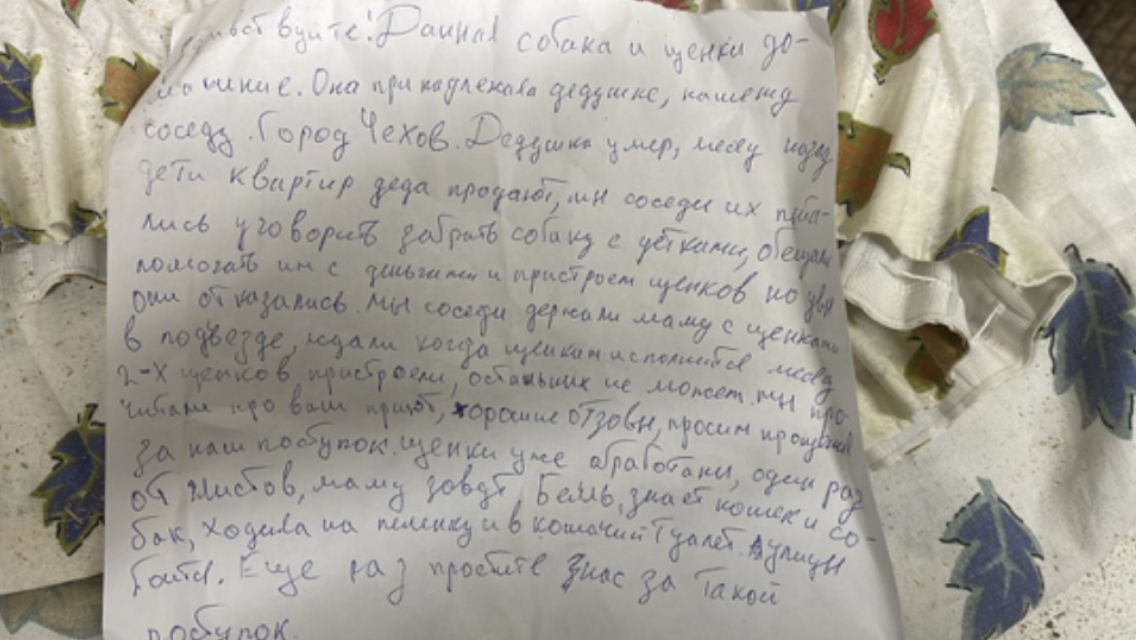 Здравствуйте! Данная собака и щенки до-
машние. Она принадлежала дедушке, нашему
соседу. Город Чехов. Дедушка умер, месяц назад
дети квартир деда продают, мы соседи их пыта-
лись уговорить забрать собаку с детками, обещали
помогать им с деньгами и пристроем щенков но увы
они отказались. Мы соседи держали маму с щенками
в подъезде, ждали когда щенкам исполнится месяц
2-х щенков пристроели, остальных не можем. Мы про-
читали про ваш приют, хорошие отзовы, просим прощения
за наш побупок. щенки уже обработаны, один раз
от глистов, маму зовут Белль, знает кошек и со-
бак, ходила на пеленку и в кошачий туалет. Аулицы
боится. Еще раз простите нас за такой
побупок.